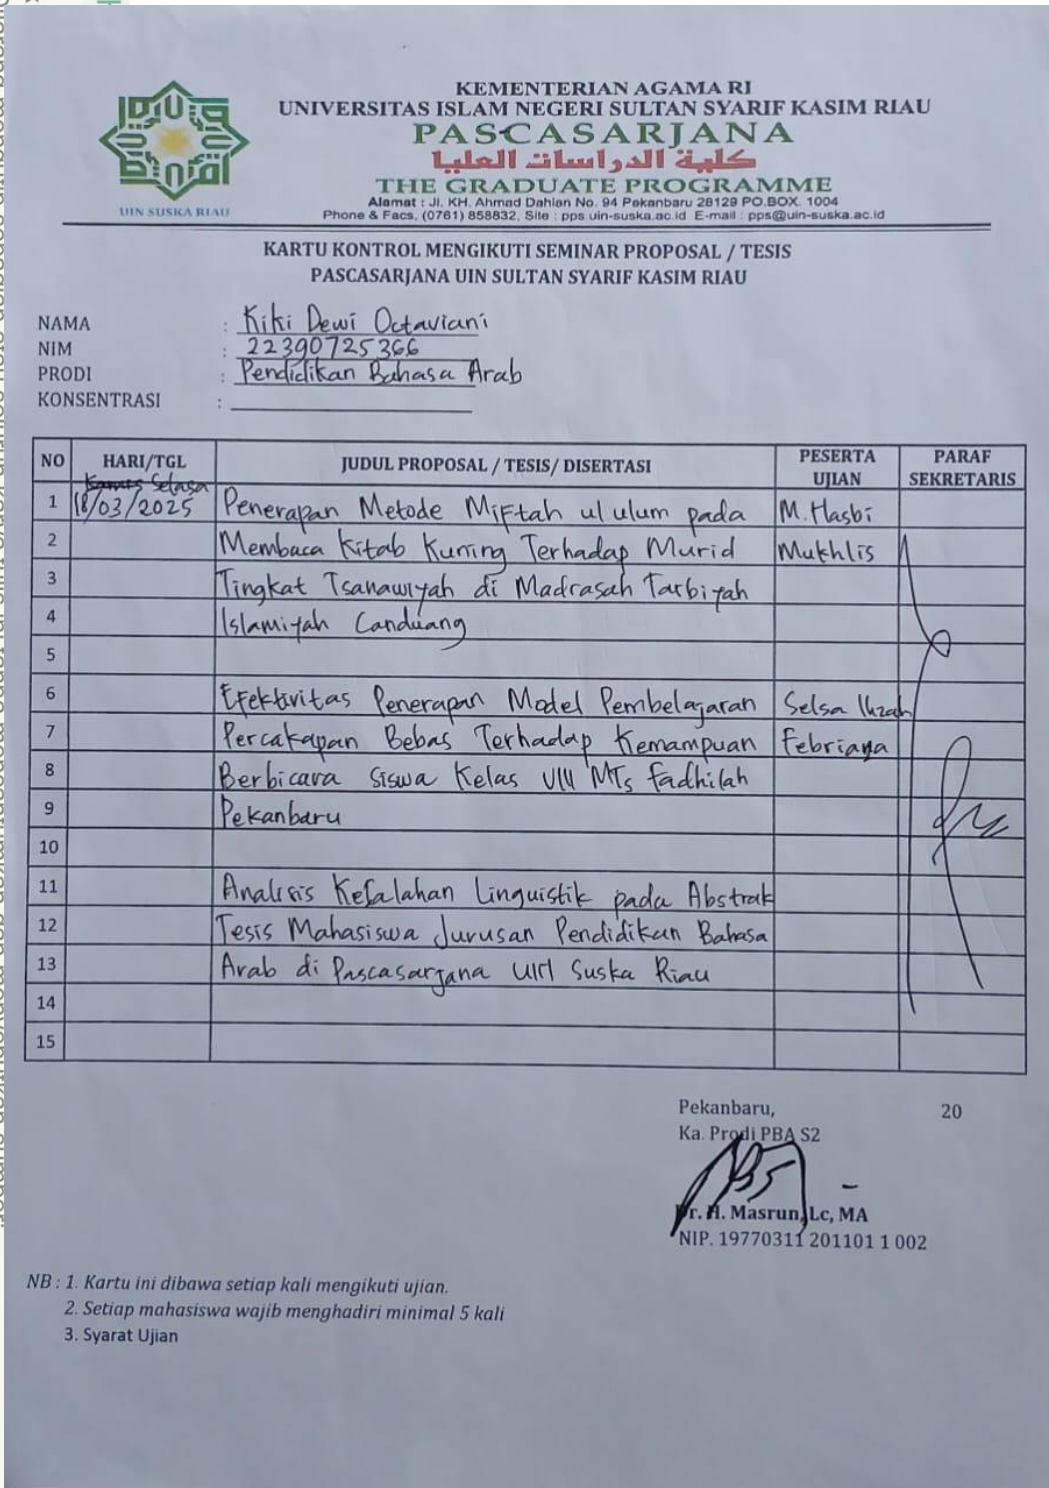 UIN SUSKA RIAU
KEMENTERIAN AGAMA RI
UNIVERSITAS ISLAM NEGERI SULTAN SYARIF KASIM RIAU
PASCASARJANA
كلية الدراسات العليا
THE GRADUATE PROGRAMME
Alamat : Jl. KH. Ahmad Dahlan No. 94 Pekanbaru 28129 PO.BOX. 1004
Phone & Facs, (0761) 858832, Site : pps.uin-suska.ac.id E-mail : pps@uin-suska.ac.id
KARTU KONTROL MENGIKUTI SEMINAR PROPOSAL / TESIS
PASCASARJANA UIN SULTAN SYARIF KASIM RIAU
NAMA : Kiki Dewi Octaviani
NIM : 22390725366
PRODI : Pendidikan Bahasa Arab
KONSENTRASI :
NO HARI/TGL JUDUL PROPOSAL / TESIS/ DISERTASI PESERTA UJIAN PARAF SEKRETARIS
Kamis Selasa
1 18/03/2025 Penerapan Metode Miftah ul ulum pada M. Hasbi
2 Membaca Kitab Kuning Terhadap Murid Mukhlis
3 Tingkat Tsanawiyah di Madrasah Tarbiyah
4 Islamiyah Canduang
5
6 Efektivitas Penerapan Model Pembelajaran Selsa
7 Percakapan Bebas Terhadap Kemampuan Febriana
8 Berbicara Siswa Kelas VIII MTs Fadhilah
9 Pekanbaru
10
11 Analisis Kesalahan Linguistik pada Abstrak
12 Tesis Mahasiswa Jurusan Pendidikan Bahasa
13 Arab di Pascasarjana UIN Suska Riau
14
15
Pekanbaru, 20
Ka. Prodi PBA S2
Dr. H. Masrun, Lc, MA
NIP. 19770311 201101 1 002
NB : 1. Kartu ini dibawa setiap kali mengikuti ujian.
2. Setiap mahasiswa wajib menghadiri minimal 5 kali
3. Syarat Ujian